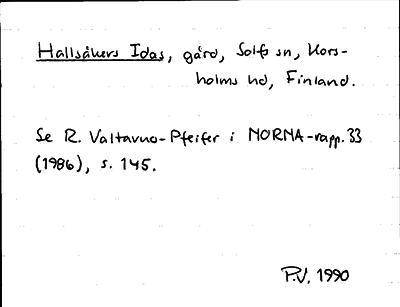 Hallsåkers Idas, gård, Solfs sn, Kors-
holms hd, Finland.
Se R. Valtavuo-Pfeifer i NORNA-rapp. 33
(1986), s. 145.
P.V. 1990